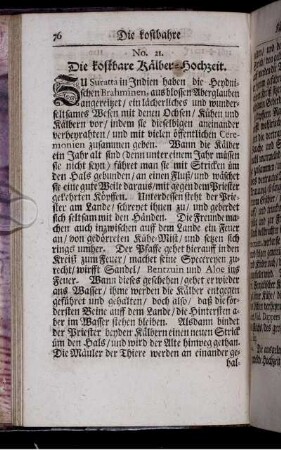 76 Die kostbahre
No. 21.
Die kostbare Kälber-Hochzeit.
ZU Suratta in Indien haben die Heydni-
schen Brahminen, aus blossen Aberglauben
angereitzet/ ein lächerliches und wunder-
seltsames Wesen mit denen Ochsen/ Kühen und
Kälbern vor/ indem sie dieselbigen aneinander
verheyrahten/ und mit vielen öffentlichen Cere-
monien zusammen geben. Wann die Kälber
ein Jahr alt sind (denn unter einem Jahr müssen
sie nicht seyn) führet man sie mit Stricken üm
den Hals gebunden/ an einen Fluß/ und wäschet
sie eine gute Weile daraus/ mit gegen dem Priester
gekehrten Köpffen. Unterdessen stehet der Prie-
ster am Lande/ schreyet ihnen zu/ und geberdet
sich seltsam mit den Händen. Die Freunde ma-
chen auch inzwischen auff dem Lande ein Feuer
an/ von gedörreten Kühe-Mist/ und setzen sich
rings umher. Der Pfaffe gehet hierauff in den
Kreiß zum Feuer/ machet seine Specereyen zu-
recht/ wirfft Sandel/ Bentzuin und Aloe ins
Feuer. Wann dieses geschehen/ gehet er wieder
ans Wasser/ ihme werden die Kälber entgegen
geführet und gehalten/ doch also/ daß die för-
dersten Beine auff dem Lande/ die Hintersten a-
ber im Wasser stehen bleiben. Alsdann bindet
der Priester beyden Kälbern einen neuen Strick
üm den Hals/ und wird der Alte hinweg gethan.
Die Mäuler der Thiere werden an einander ge-
hal-